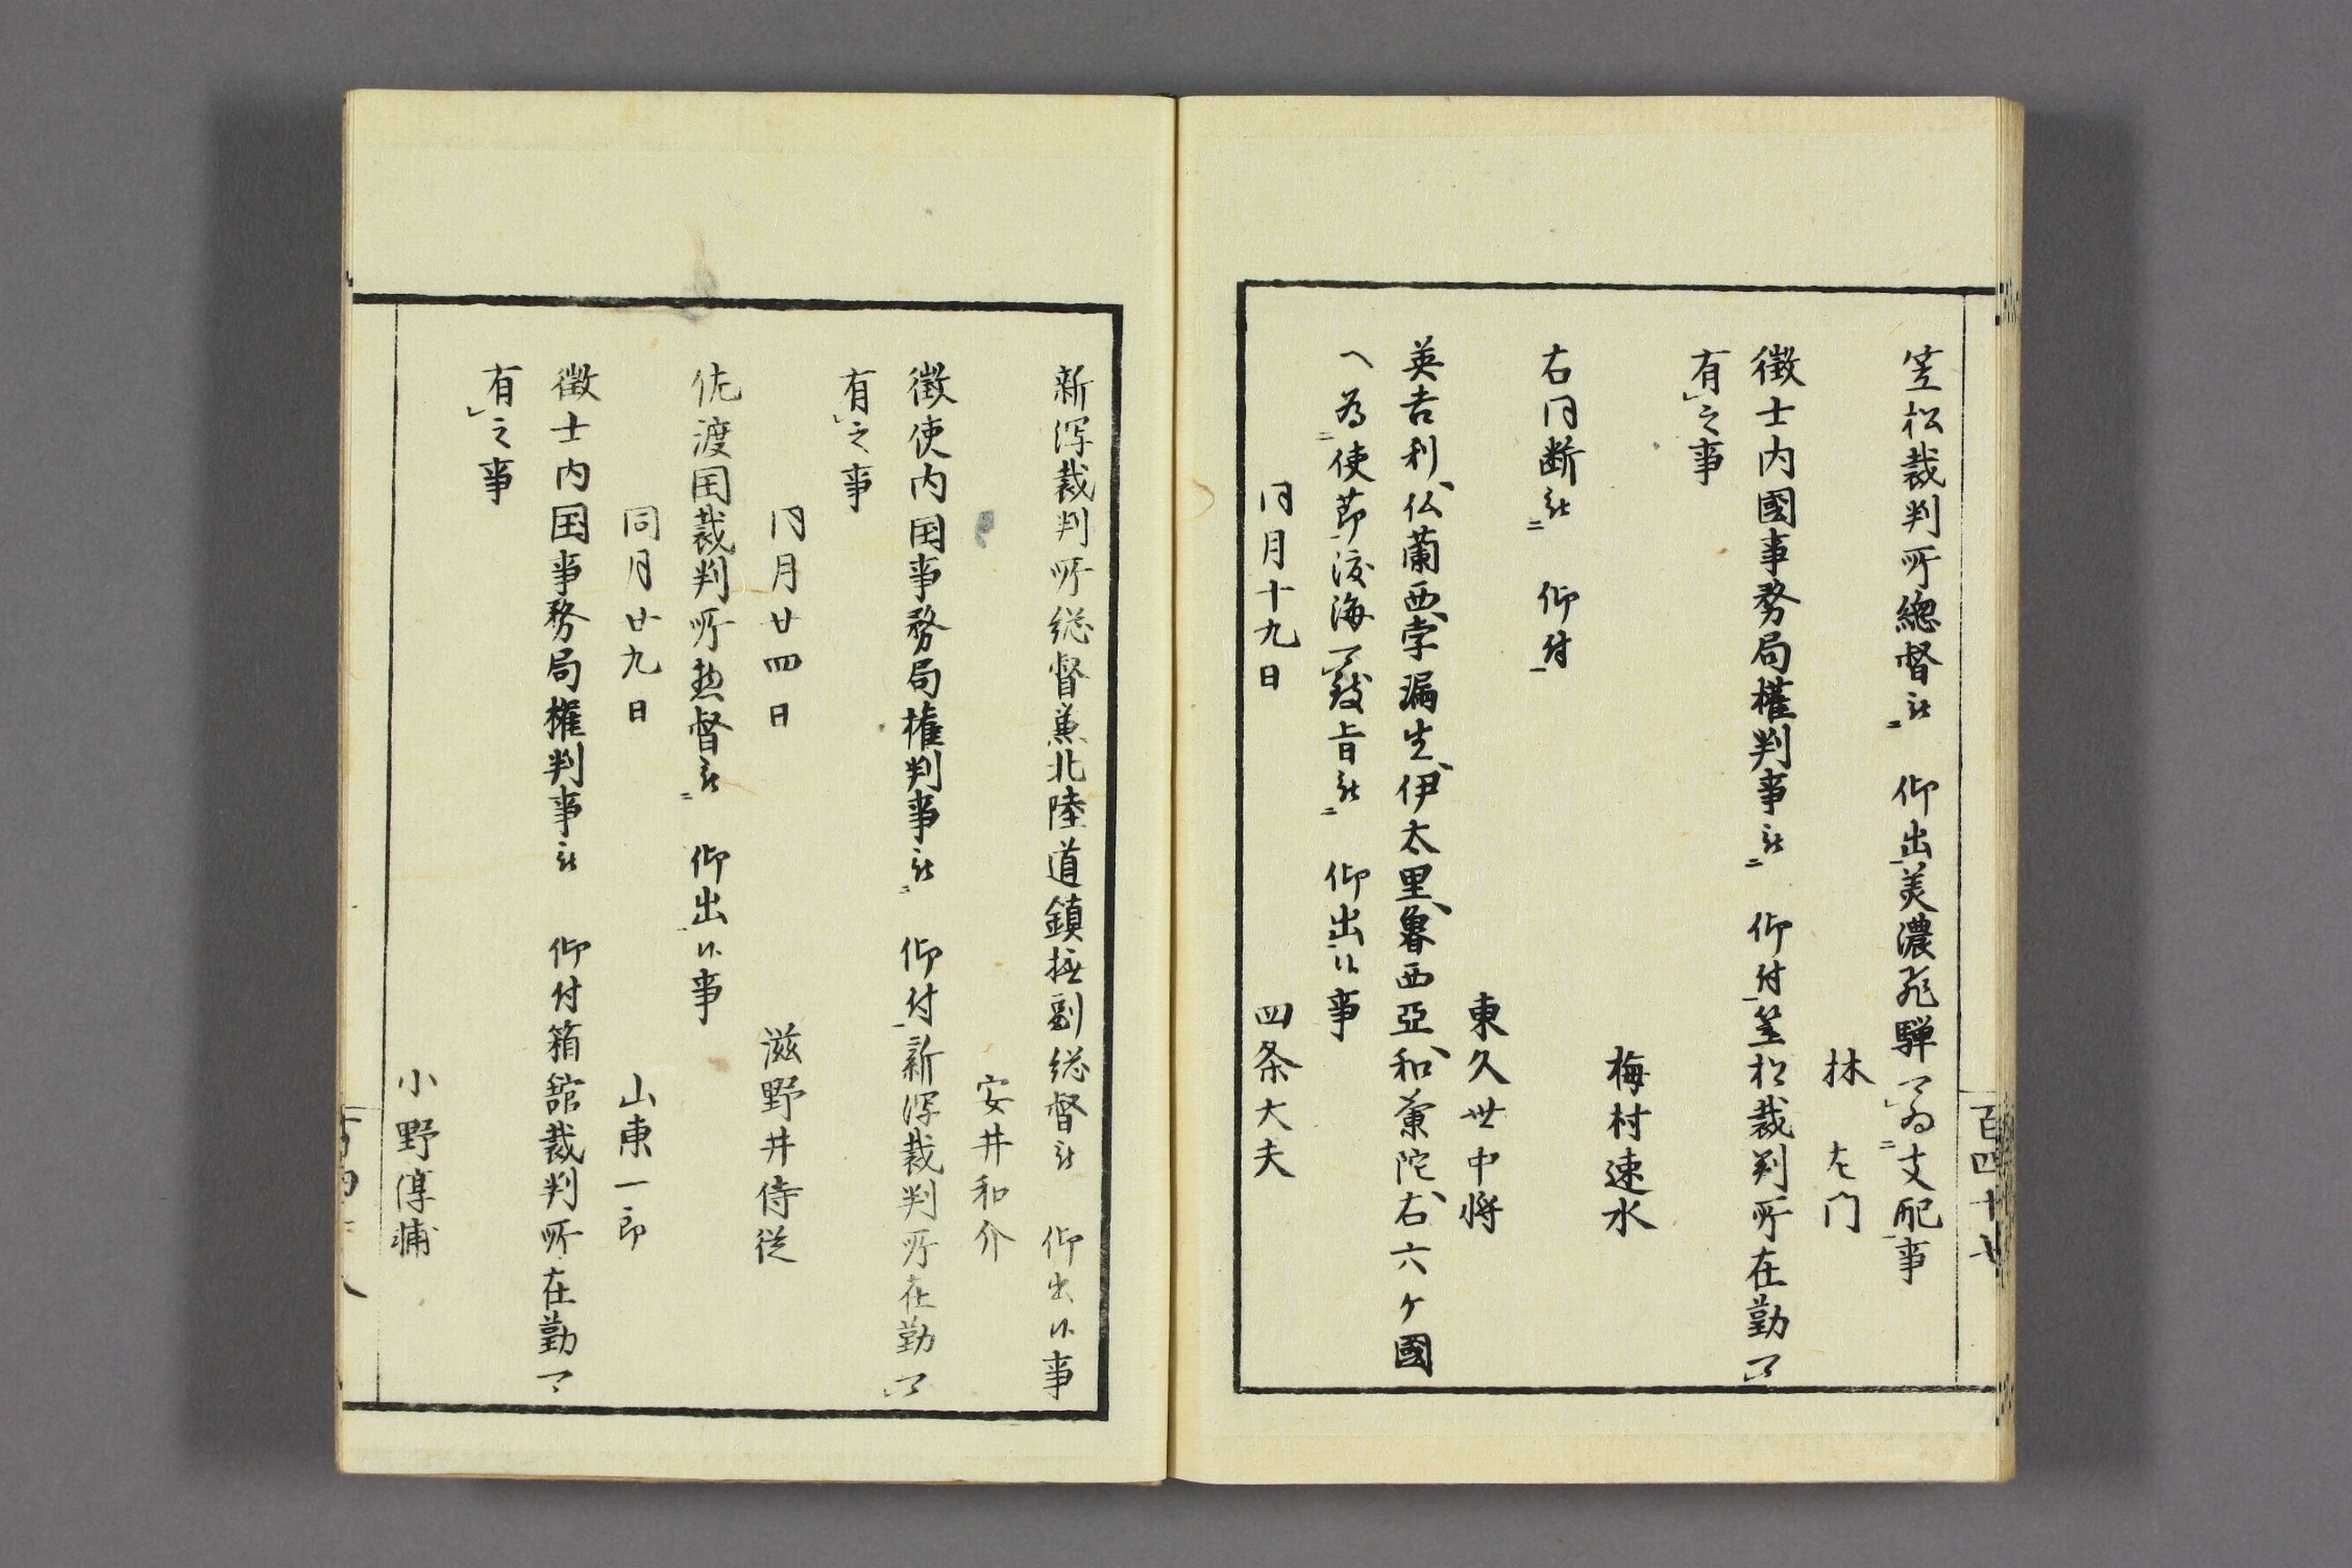 百四十七
笠松裁判所總督被ニ 仰出美濃飛騨可為ニ支配事
林 左門
徴士内國事務局権判事被ニ 仰付笠松裁判所在勤可
有之事
梅村速水
右同断被ニ 仰付
東久世中将
英吉利、仏蘭西、孛漏生、伊太里、魯西亞、和蘭陀、右六ケ國
へ為ニ使節渡海可致旨被ニ 仰出候事
同月十九日 四条大夫
新潟裁判所総督兼北陸道鎮撫副総督被 仰出候事
安井和介
徴使内国事務局権判事被ニ 仰付新潟裁判所在勤可
有之事
同月廿四日 滋野井侍従
佐渡国裁判所惣督被ニ 仰出候事
同月廿九日 山東一郎
徴士内国事務局権判事被 仰付箱舘裁判所在勤可
有之事
小野淳輔